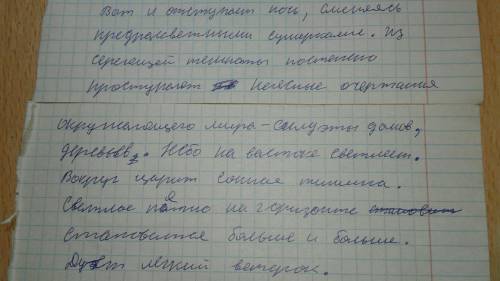 Вот и отступает ночь, сменяясь
предрассветными сумерками. Из
сереющей темноты постепенно
проступают неясные очертания
окружающего мира - силуэты домов,
деревьев. Небо на востоке светлеет.
Вокруг царит сонная тишина.
Светлое пятно на горизонте становит
становится больше и больше.
Дует легкий ветерок.